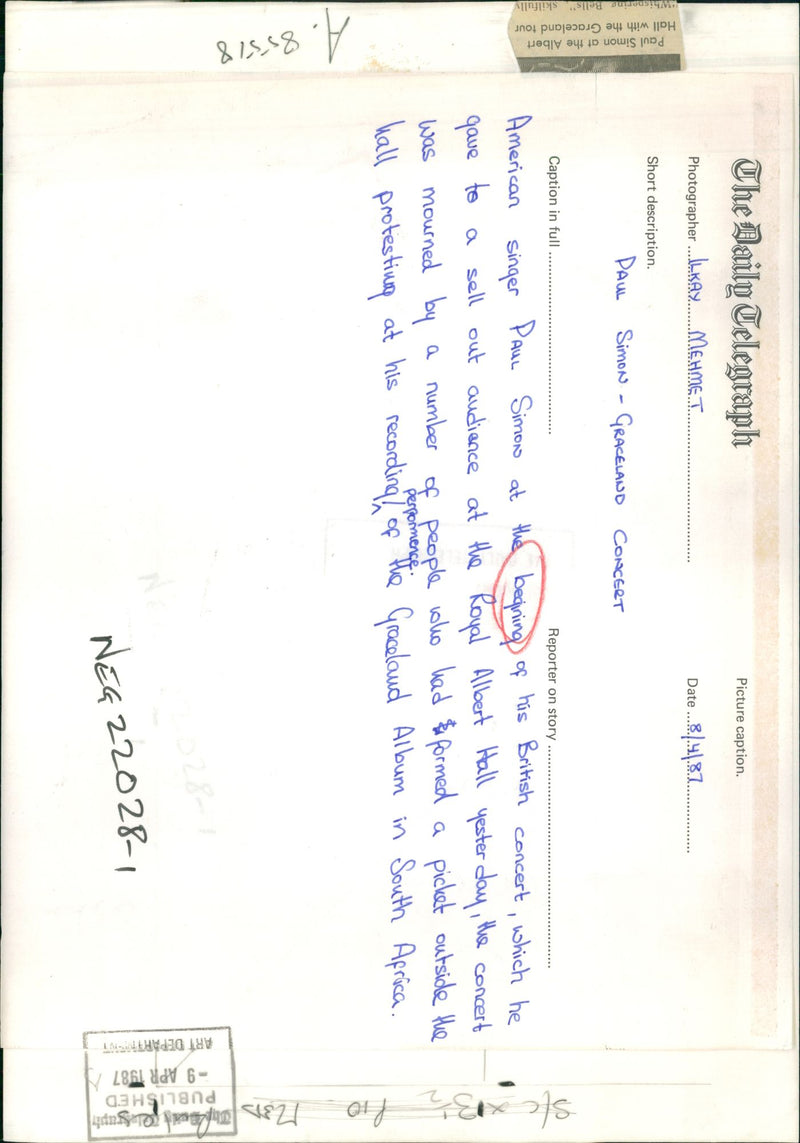 The Daily Telegraph
Picture caption.
Photographer ILKAY MEHMET
Date 8/4/87
Short description.
PAUL SIMON - GRACELAND CONCERT
Caption in full
Reporter on story
American singer PAUL SIMON at the begining of his British concert, which he
gave to a sell out audience at the Royal Albert Hall yesterday, the concert
was mourned by a number of people who had formed a picket outside the
performence.
hall protesting at his recording/ of the Graceland Album in South Africa.
NEG 22028-1
A. 85518
Paul Simon at the Albert
Hall with the Graceland tour
"Whispering Bells" skilfully
The Daily Telegraph
PUBLISHED
-9 APR 1987
ART DEPARTMENT
S/C x 13½ P10